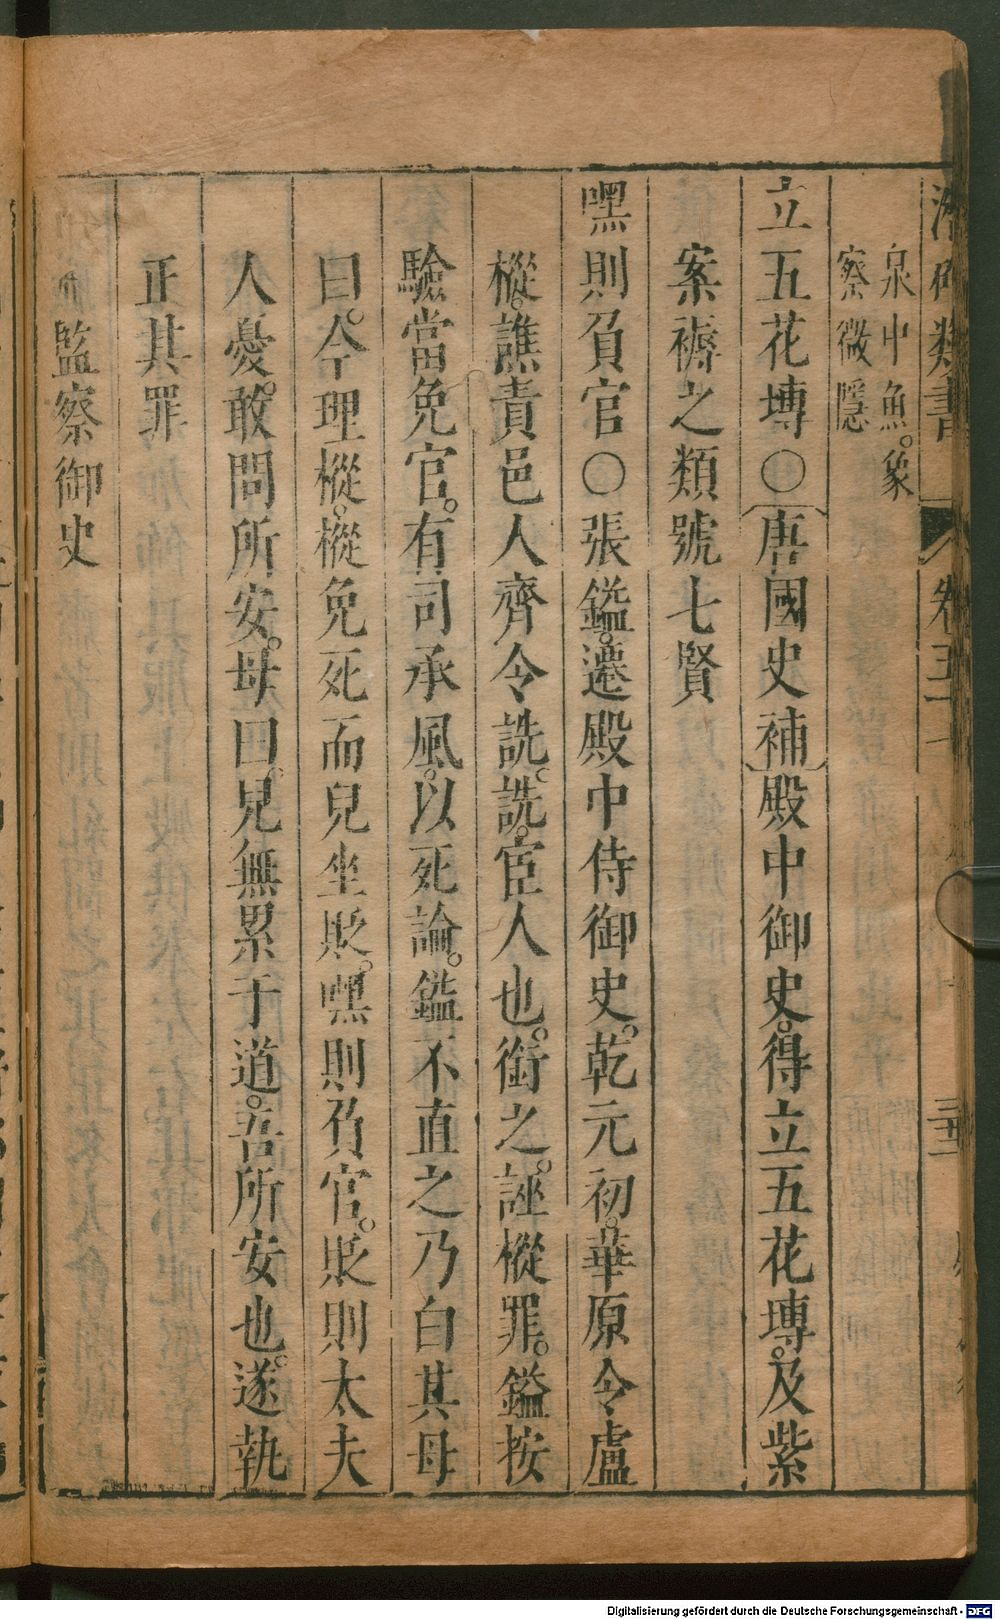 泉中魚。象
察微隱
立五花塼○唐國史補殿中御史。得立五花塼。及紫
案褥之類號七賢
嘿則負官○張鎰。遷殿中侍御史。乾元初。華原令盧
樅。譙責邑人齊令詵。詵。宦人也。銜之。誣樅罪。鎰按
驗當免官。有司承風。以死論。鎰不直之乃白其母
曰。今理樅。樅免死而兒坐貶。嘿則負官。貶則太夫
人憂。敢問所安。母曰。兒無累于道。吾所安也。遂執
正其罪
監察御史
類書
卷五十一
三十二
Digitalisierung gefördert durch die Deutsche Forschungsgemeinschaft - DFG